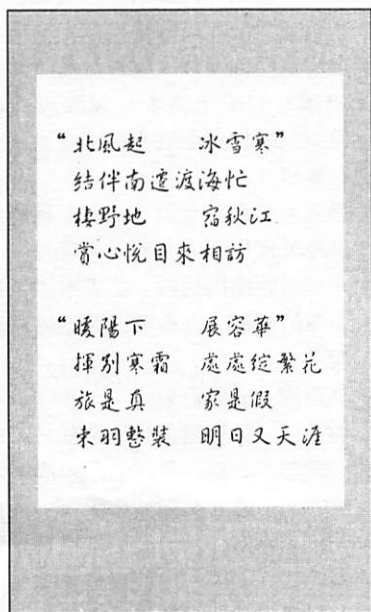 “北風起　冰雪寒”
結伴南遷渡海忙
棲野地　宿秋江
賞心悅目來相訪
“暖陽下　展容華”
揮別寒霜　處處綻繁花
旅是真　家是假
束羽整裝　明日又天涯